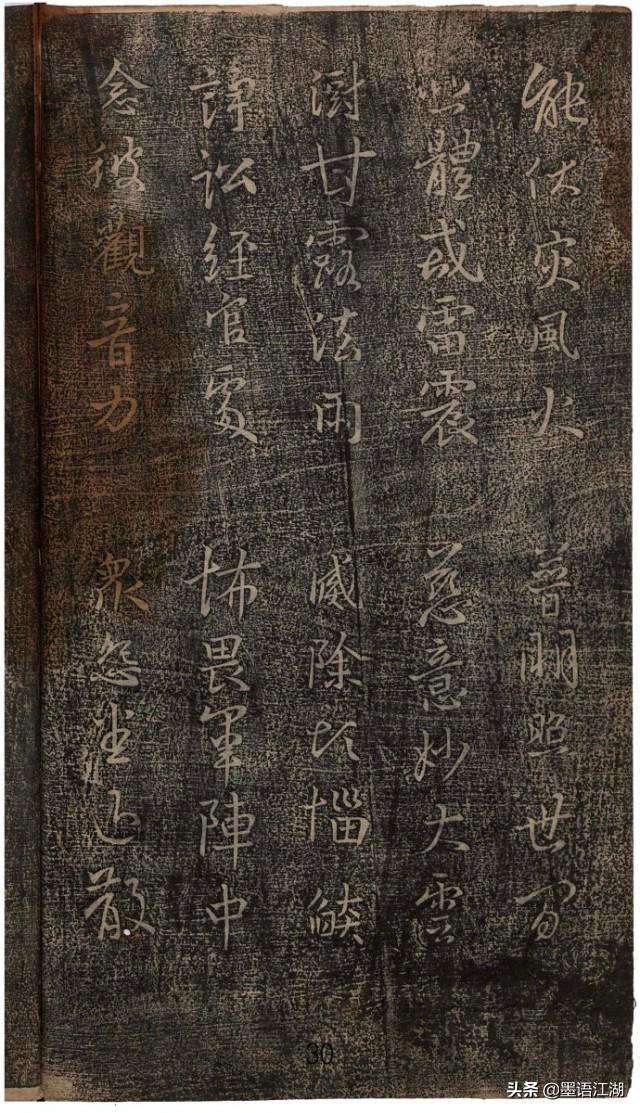 能伏灾風火 普明照世間
悲體戒雷震 慈意妙大雲
澍甘露法雨 滅除煩惱燄
諍訟經官處 怖畏軍陣中
念彼觀音力 衆怨悉退散
30
头条 @墨语江湖